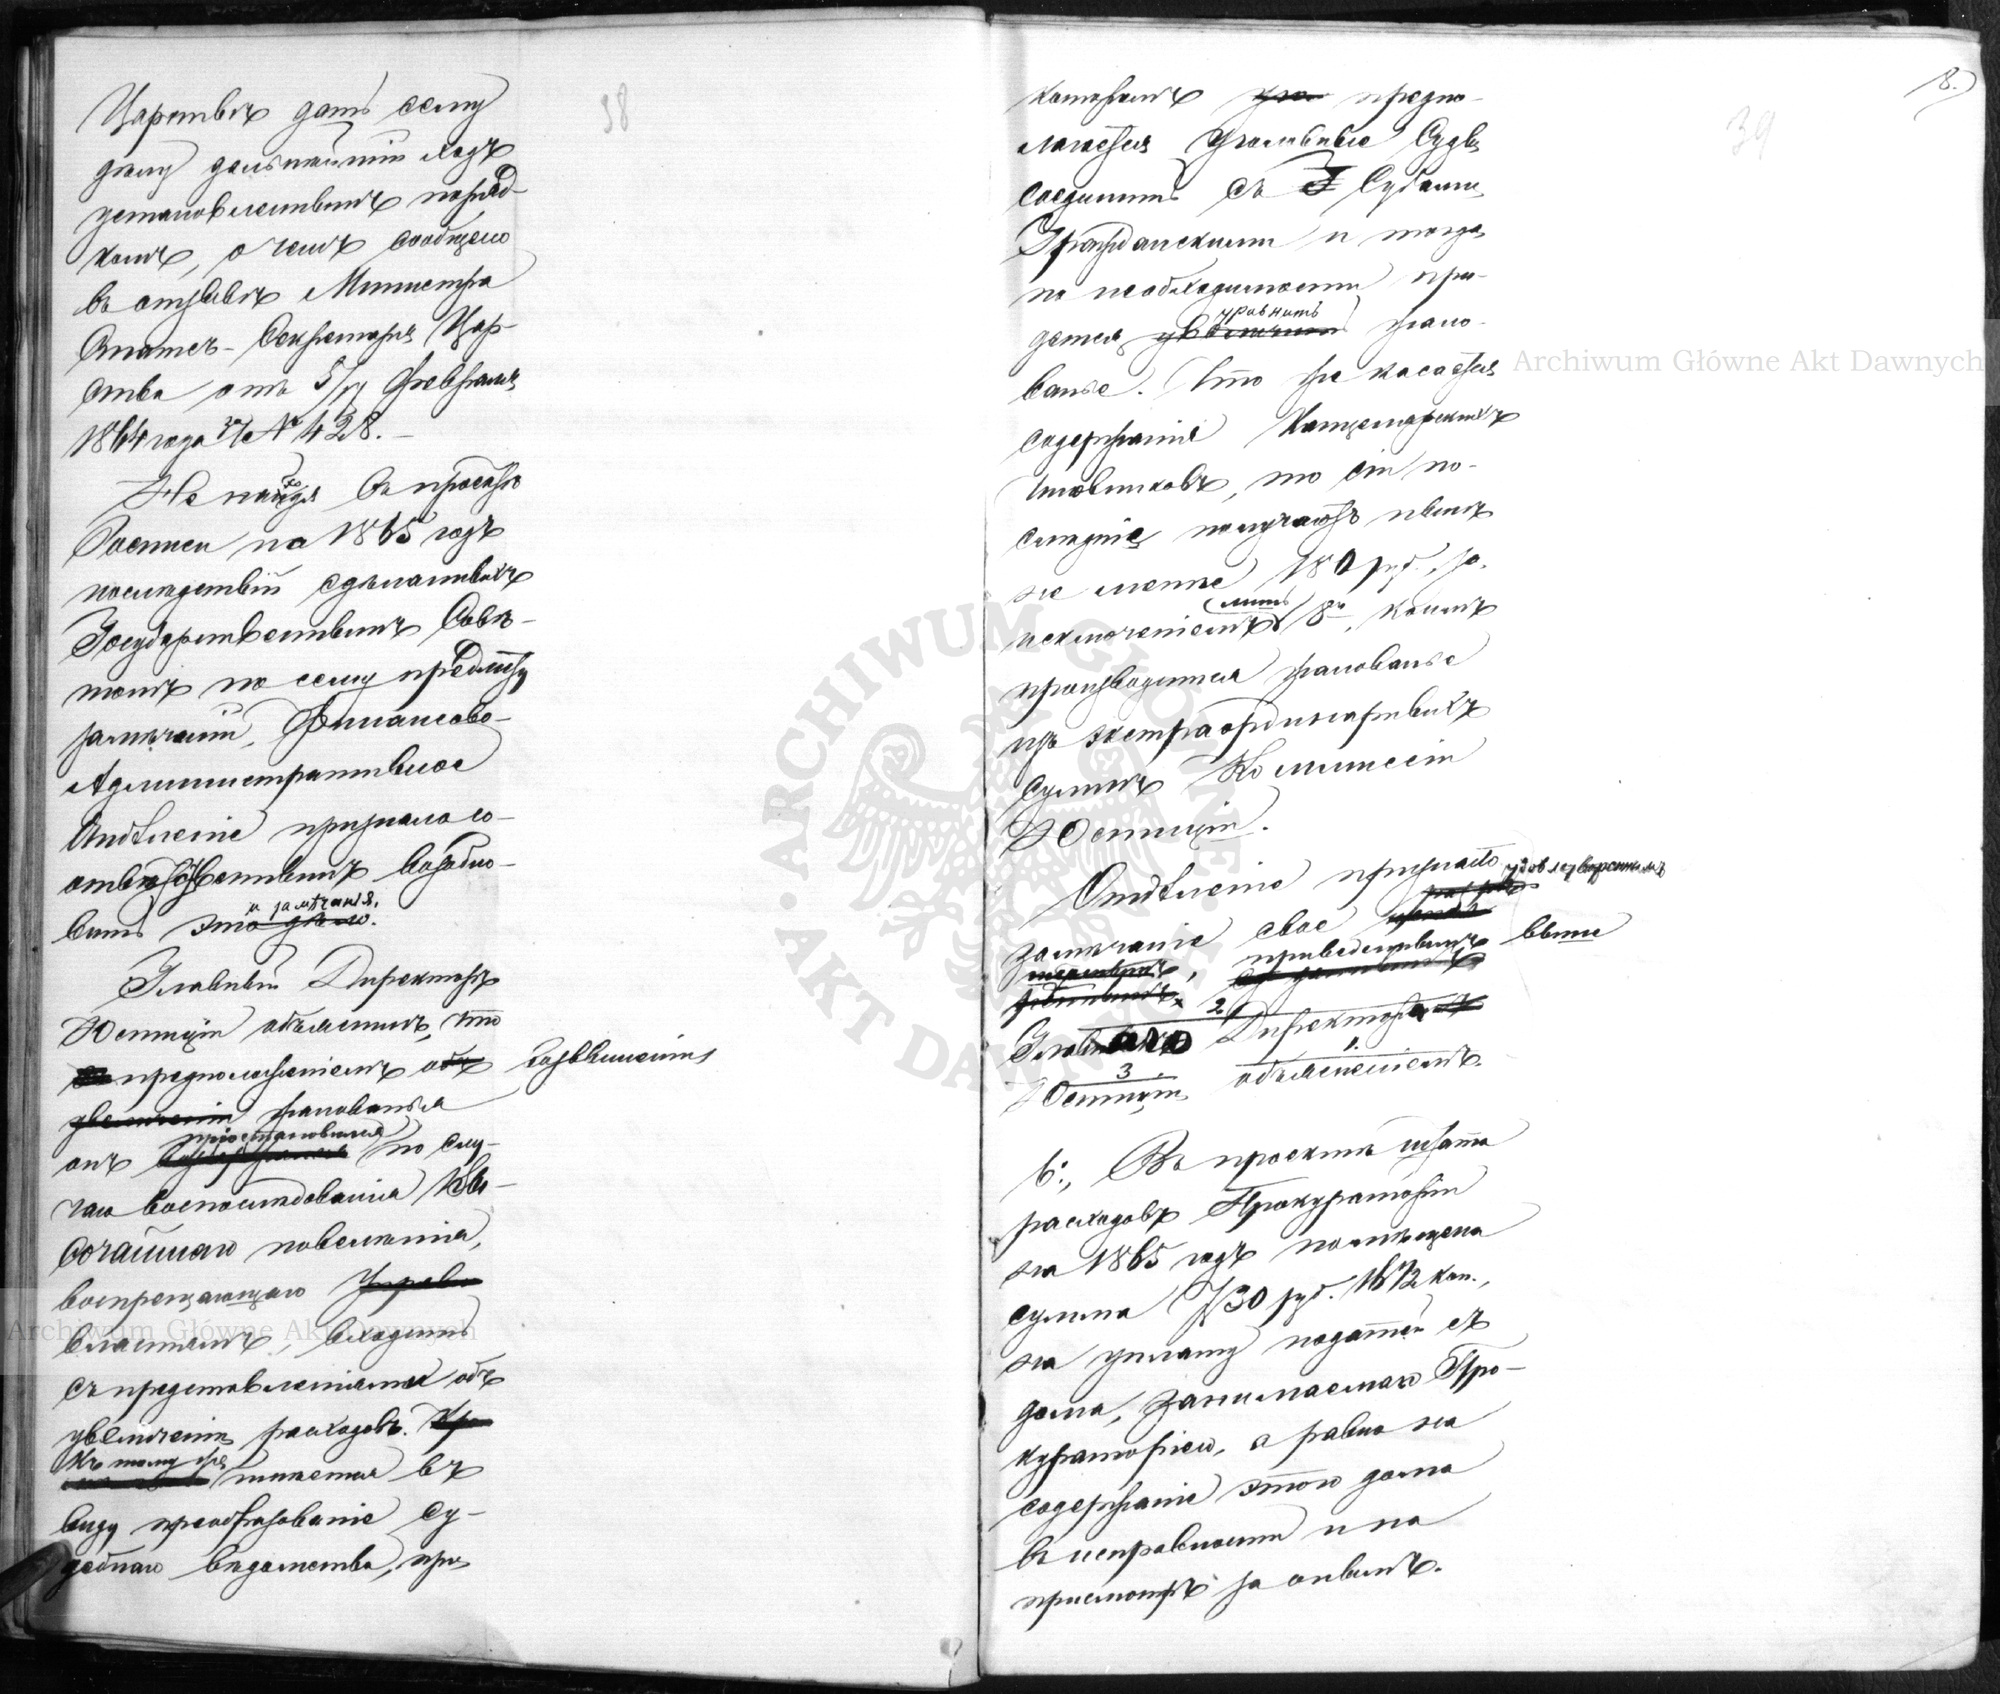 38
Царствѣ дать сему
дѣлу дальнѣйшій ходъ
установленнымъ поряд-
комъ, о чемъ сообщено
въ отзывѣ Министра
Статсъ-Секретаря Цар-
ства отъ 5/17 Февраля
1864 года за № 428.-
Не найдя въ проектѣ
Росписи на 1865 годъ
послѣдствій сдѣланныхъ
Государственнымъ Совѣ-
томъ по сему предмету
замѣчаній, Финансово-
Административное
Отдѣленіе признало со-
отвѣтственнымъ возобно-
вить это дѣло.
и замѣчанія.
Главный Директоръ
Юстиціи объяснилъ, что
предположеніемъ объ возвышеніи
увеличеніи жалованья
пріостановился
онъ по слу-
чаю воспослѣдованія Вы-
сочайшаго повелѣнія,
воспрещающаго Управ
властямъ, входить
съ представленіями объ
увеличеніи расходовъ.
Къ тому же
имѣется въ
виду преобразованіе су-
дебнаго вѣдомства, при
8.
39
которомъ предпо-
лагается Уголовные Суды
соединить съ Судами
Гражданскими и тогда
по необходимости при-
уравнять
дется увеличить жало-
ванье. Что же касается
содержанія Канцелярскихъ
Чиновниковъ, то сіи по-
слѣдніе получаютъ нынѣ
не менѣе 180 руб., за
лишь
исключеніемъ 8и, коимъ
производится жалованье
изъ экстраординарныхъ
суммъ Коммиссіи
Юстиціи.
Отдѣленіе признаетъ удовлетвореннымъ
замѣчаніе свое
приведеннымъ выше
2
Главнаго Директора
3. 1.
Юстиціи объясненіемъ.
6:, Въ проектѣ штата
расходовъ Прокураторіи
на 1865 годъ помѣщена
сумма 730 руб. 16 1/2 коп.,
на уплату податей съ
дома, занимаемаго Про-
кураторіею, а равно на
содержаніе этого дома
въ исправности и на
присмотръ за онымъ.
Archiwum Główne Akt Dawnych
Archiwum Główne Akt Dawnych
ARCHIWUM GŁÓWNE AKT DAWNYCH